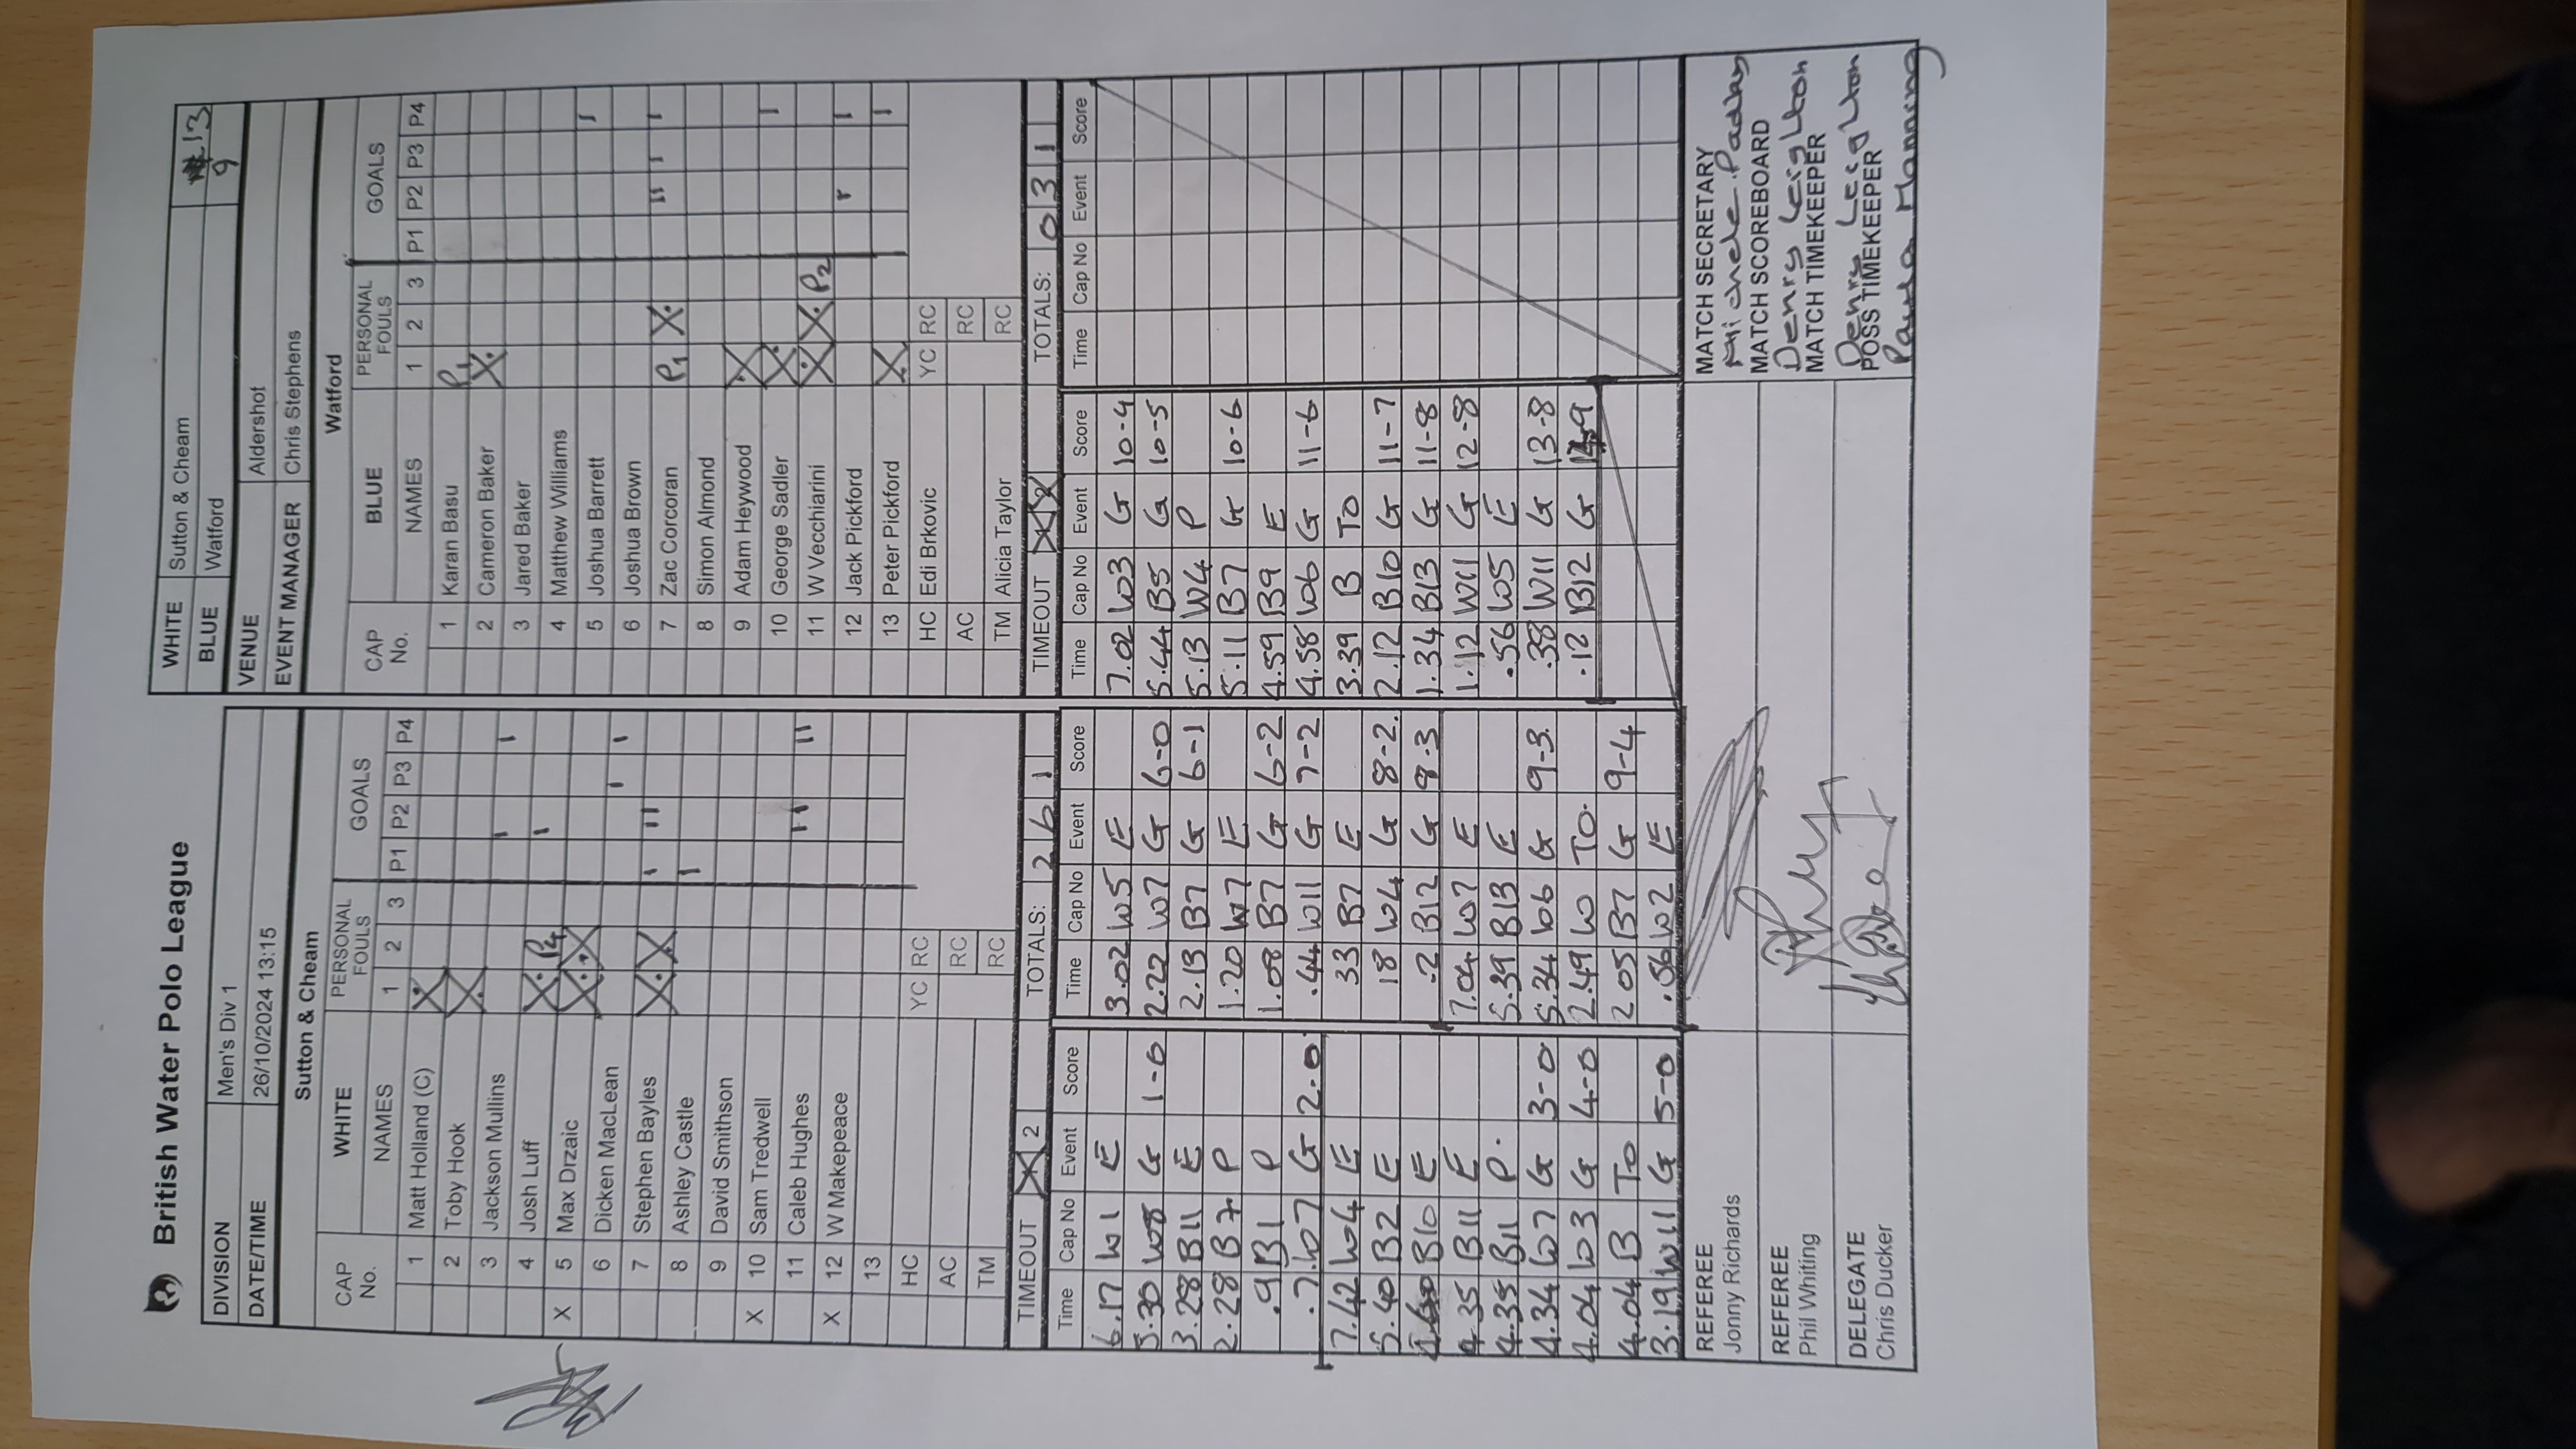 British Water Polo League
DIVISION Men's Div 1
DATE/TIME 26/10/2024 13:15
WHITE Sutton & Cheam 13
BLUE Watford 9
VENUE Aldershot
EVENT MANAGER Chris Stephens
Sutton & Cheam
CAP No. WHITE PERSONAL FOULS GOALS
NAMES 1 2 3 P1 P2 P3 P4
1 Matt Holland (C) X
2 Toby Hook X
3 Jackson Mullins I I
4 Josh Luff X P4 I
X 5 Max Drzaic X X
6 Dicken MacLean I I
7 Stephen Bayles X X I II
8 Ashley Castle I
9 David Smithson
X 10 Sam Tredwell
11 Caleb Hughes II II
X 12 W Makepeace
13
HC YC RC
AC RC
TM RC
TIMEOUT X 2 TOTALS: 2 6 1
Watford
CAP No. BLUE PERSONAL FOULS GOALS
NAMES 1 2 3 P1 P2 P3 P4
1 Karan Basu P1
2 Cameron Baker X
3 Jared Baker
4 Matthew Williams
5 Joshua Barrett I
6 Joshua Brown
7 Zac Corcoran P1 X II I I
8 Simon Almond
9 Adam Heywood X
10 George Sadler X I
11 W Vecchiarini X X P2
12 Jack Pickford I I
13 Peter Pickford X I
HC Edi Brkovic YC RC
AC RC
TM Alicia Taylor RC
TIMEOUT X X TOTALS: 0 3 1
Time Cap No Event Score
6.17 W1 E
3.30 W8 G 1-0
3.28 B11 E
2.28 B7 P
.9 B1 P
.7 W7 G 2-0
7.42 W4 E
5.40 B2 E
B10 E
4.35 B11 E
4.35 B11 P.
4.34 W7 G 3-0
4.04 W3 G 4-0
4.04 B TO
3.19 W11 G 5-0
Time Cap No Event Score
3.02 W5 E
2.22 W7 G 6-0
2.13 B7 G 6-1
1.20 W7 E
1.08 B7 G 6-2
.44 W11 G 7-2
33 B7 E
18 W4 G 8-2.
.2 B12 G 8-3
7.04 W7 E
5.39 B13 E
5.34 W6 G 9-3.
2.49 W TO.
2 05 B7 G 9-4
.56 W2 E
Time Cap No Event Score
7.02 W3 G 10-4
5.44 B5 G 10-5
5.13 W4 P
5.11 B7 G 10-6
4.59 B9 E
4.58 W6 G 11-6
3.39 B TO
2.12 B10 G 11-7
1.34 B13 G 11-8
1.12 W11 G 12-8
.56 W5 E
.38 W11 G 13-8
.12 B12 G
Time Cap No Event Score
REFEREE
Jonny Richards
REFEREE
Phil Whiting
DELEGATE
Chris Ducker
MATCH SECRETARY
Michele Padday
MATCH SCOREBOARD
Denry Leighton
MATCH TIMEKEEPER
Denry Leighton
POSS TIMEKEEPER
Paula Manning